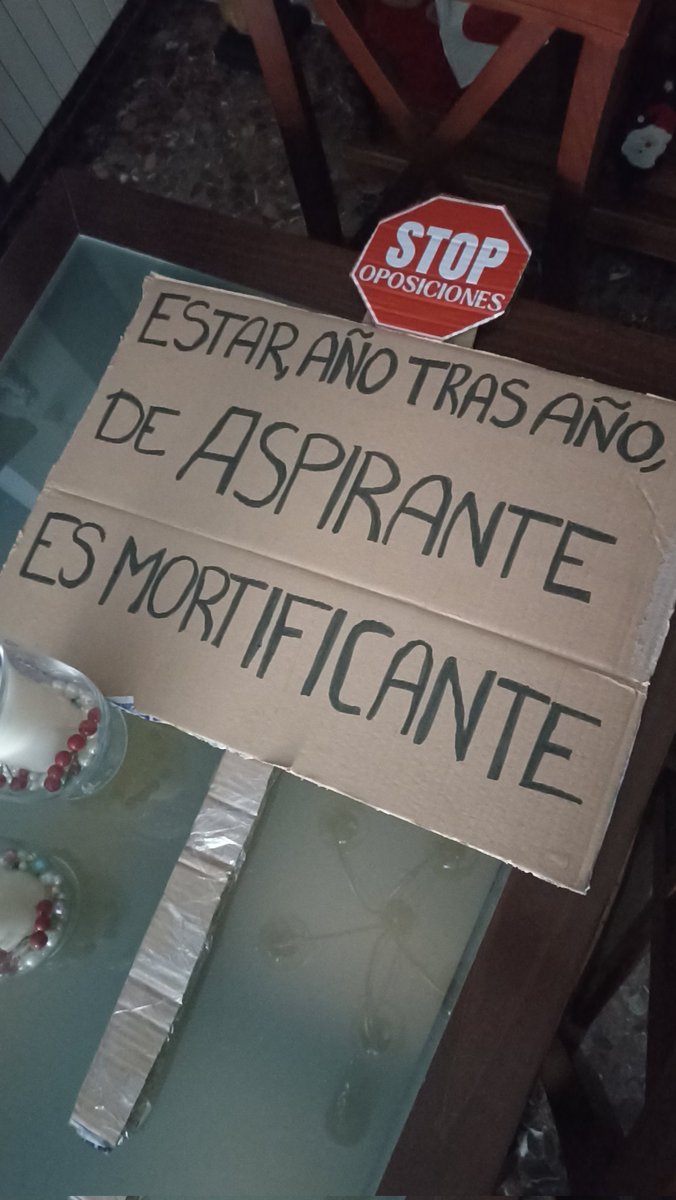 STOP
OPOSICIONES
ESTAR, AÑO TRAS AÑO,
DE ASPIRANTE
ES MORTIFICANTE